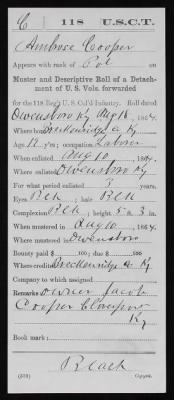 C | 118 | U.S.C.T.
Ambrose Cooper
Appears with rank of Pvt on
Muster and Descriptive Roll of a Detach-
ment of U. S. Vols. forwarded
for the 118 Reg't U. S. Col'd Infantry. Roll dated
Owensboro Ky Aug 18, 1864.
Where born Breckenridge Co Ky
Age y'rs; occupation Labor
When enlisted Aug 10, 1864.
Where enlisted Owensboro Ky
For what period enlisted 3 years.
Eyes Blk; hair Blk
Complexion Blk; height 5 ft. 3 in.
When mustered in Aug 10, 1864.
Where mustered in Owensboro
Bounty paid $ 100; due $ 100
Where credited Breckenridge Co Ky
Company to which assigned
Remarks: Owner Jacob
Cooper
Ky
Book mark:
Copyist.